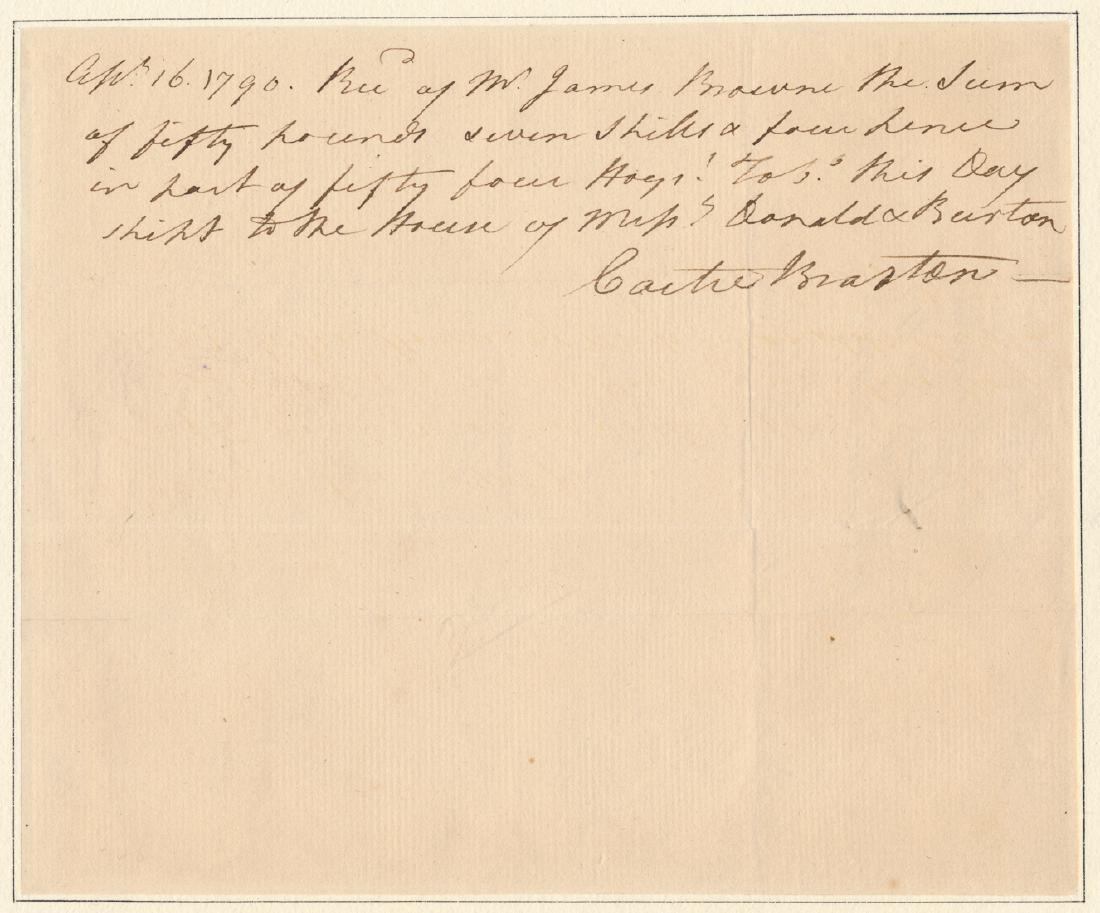 Apl. 16. 1790. Recd of Mr. James Browne the Sum
of fifty pounds seven Shills & four pence
in part of fifty four Hogs: Tobo. this Day
shipt to the House of Messrs Donald & Burton
Carter Braxton —